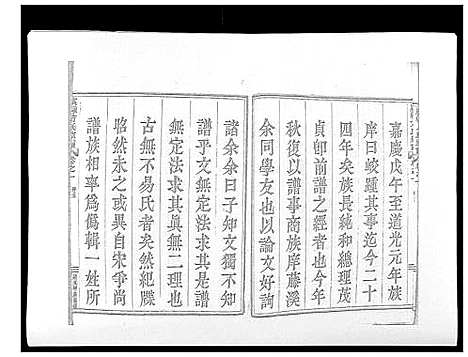 嘉慶戊午至道光元年族
庠曰峻踵其事迄今二十
四年矣族長純和總理茂
貞卽前譜之經者也今年
秋復以譜事商族庠藤溪
余同學友也以論文好詢
諸余余曰子知文獨不知
譜乎文無定法求其是譜
無定法求其眞無二理也
古無不易氏者矣然紀牒
昭然未之或異自宋爭尚
譜族相率爲僞輯一姓所